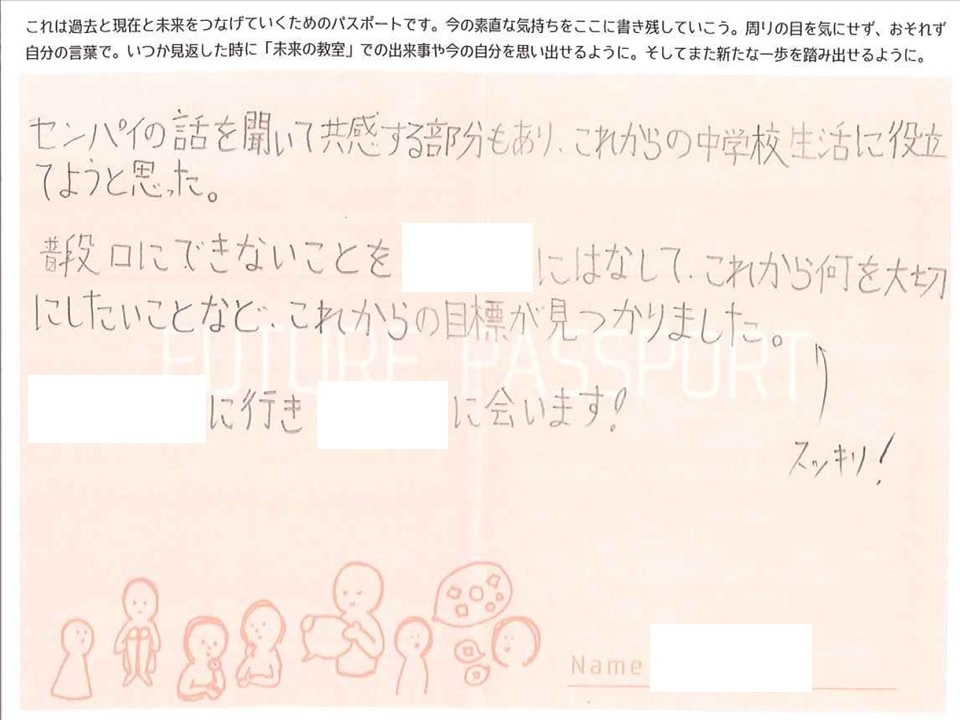 これは過去と現在と未来をつなげていくためのパスポートです。今の素直な気持ちをここに書き残していこう。周りの目を気にせず、おそれず
自分の言葉で。いつか見返した時に「未来の教室」での出来事や今の自分を思い出せるように。そしてまた新たな一歩を踏み出せるように。
センパイの話を聞いて共感する部分もあり、これからの中学校生活に役立
てようと思った。
普段口にできないことを にはなして、これから何を大切
にしたいことなど、これからの目標が見つかりました。
FUTURE PASSPORT
に行き に会います!
スッキリ!
Name